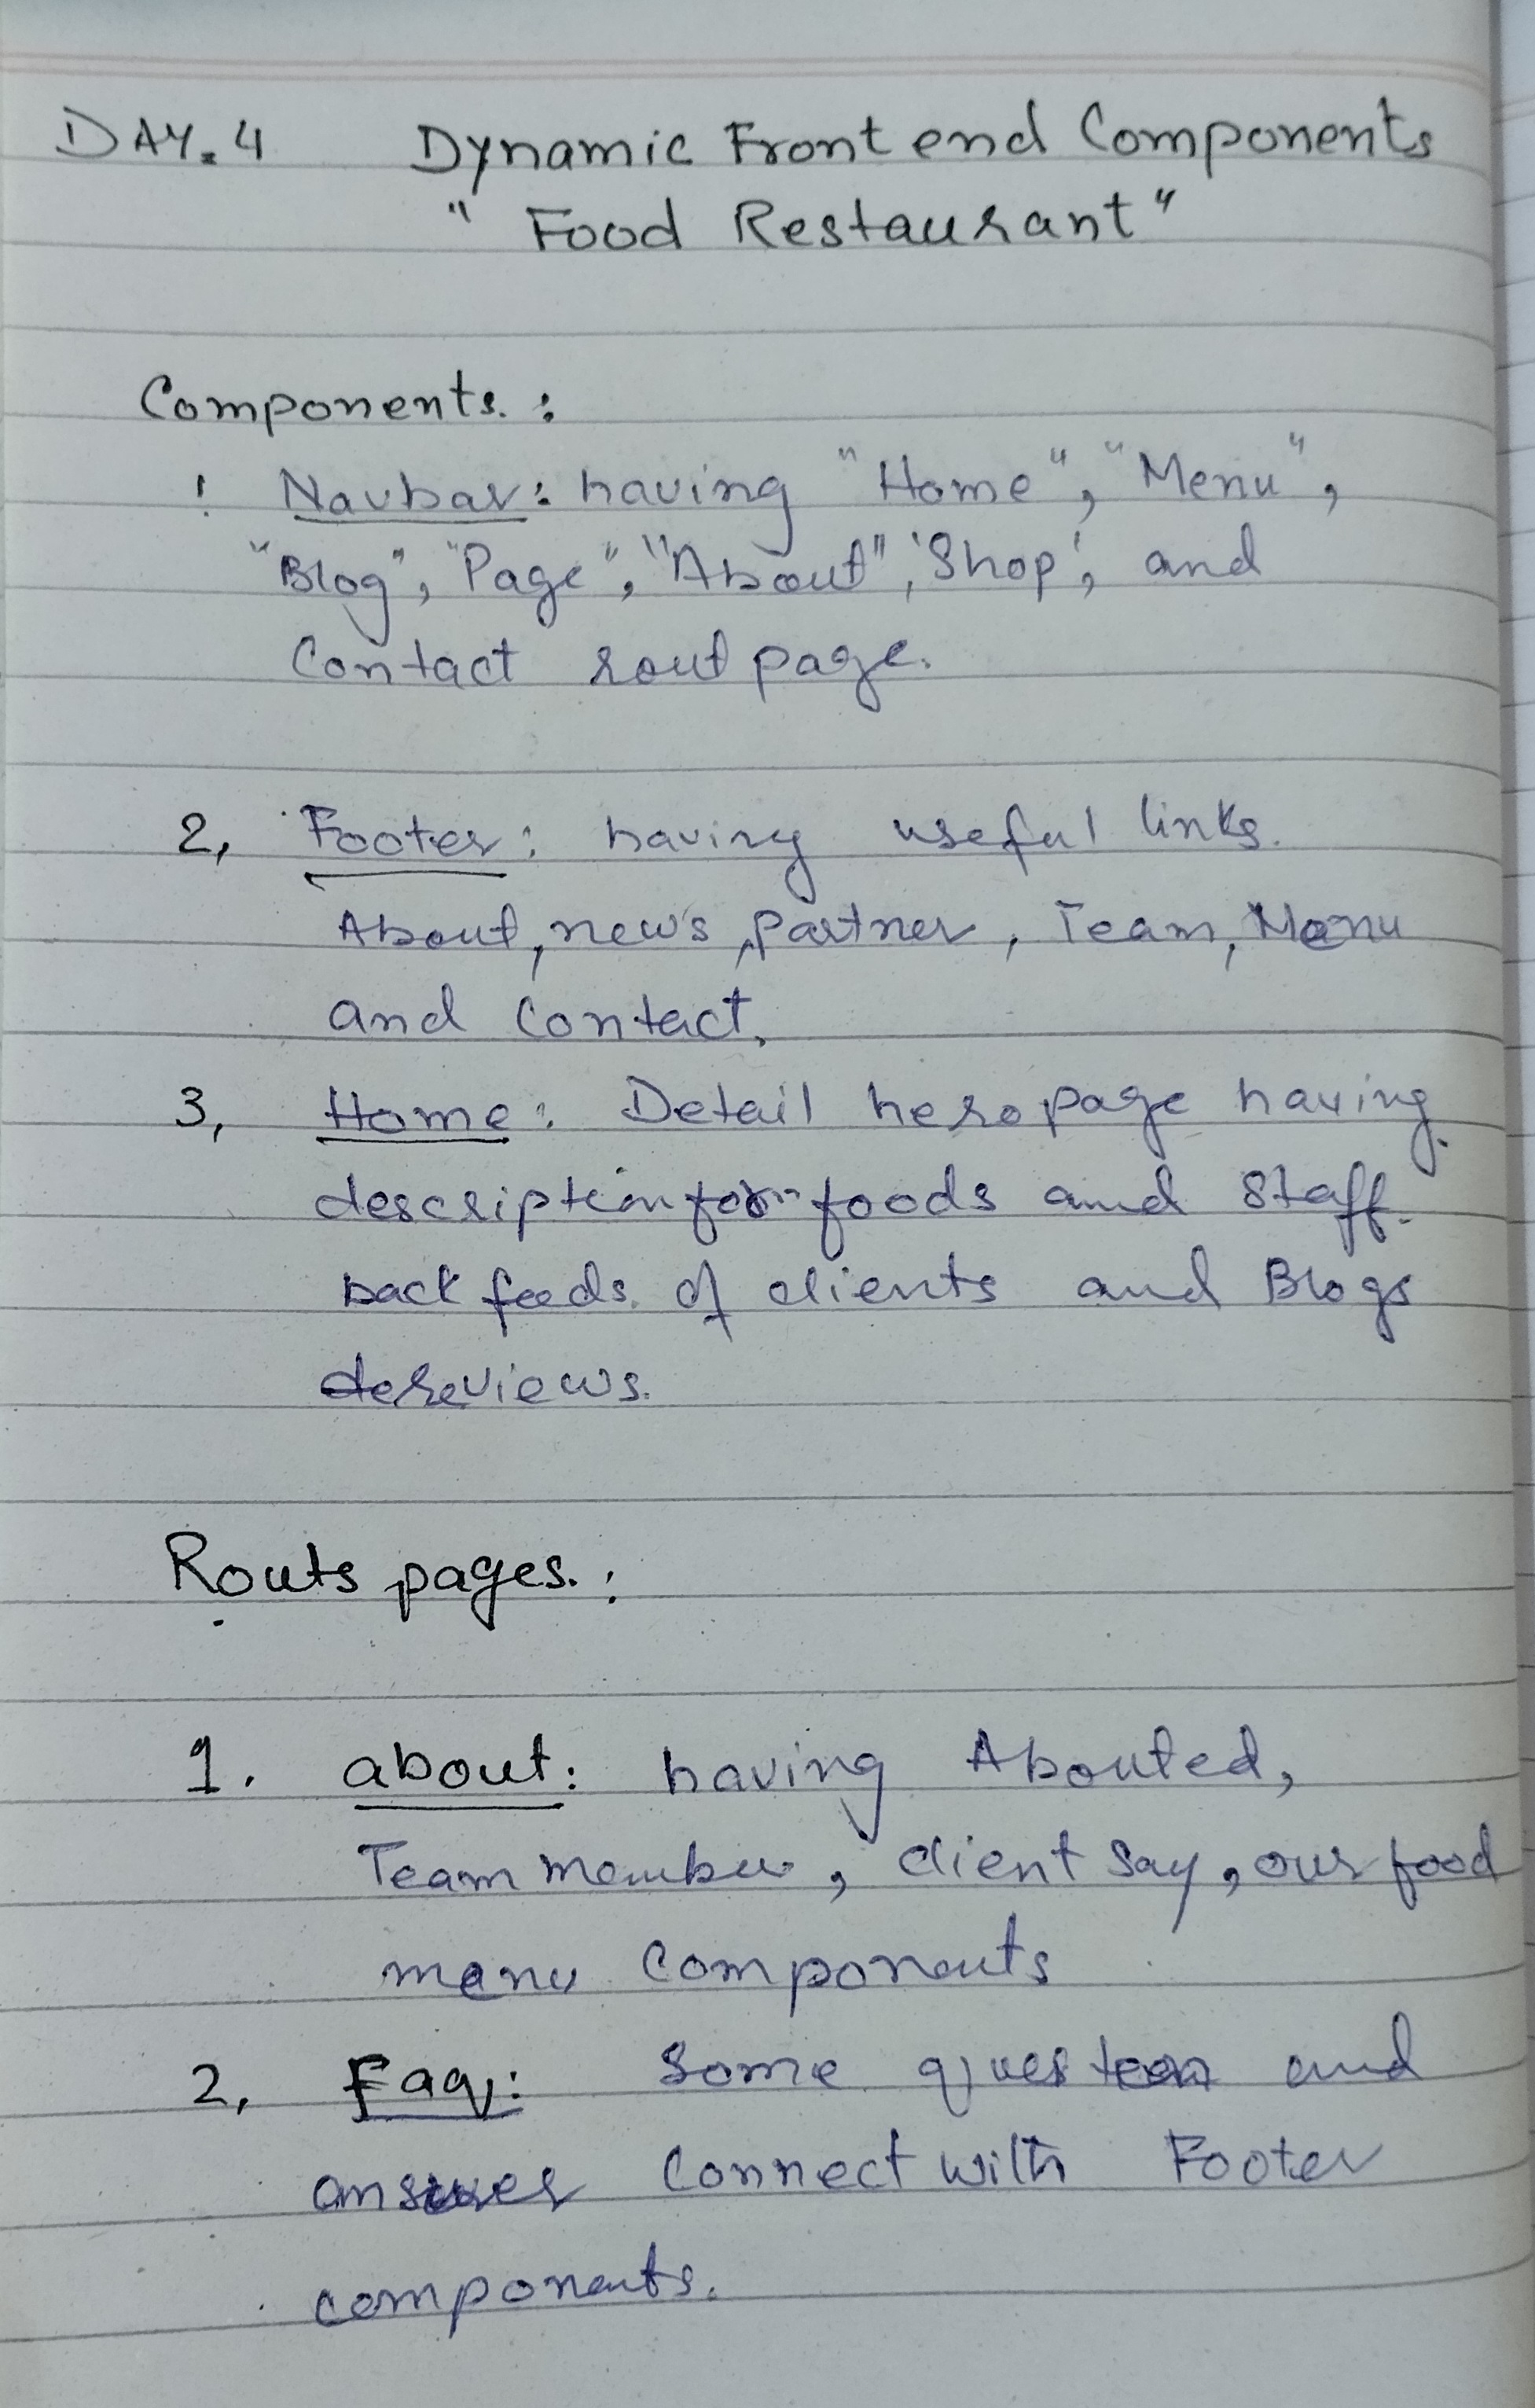 DAY.4 Dynamic Front end Components
" Food Restaurant "
Components. :
! Navbar: having "Home", "Menu",
"Blog", "Page", "About", 'Shop', and
Contact rout page.
2, Footer: having useful links.
About, news, partner, Team, Menu
and Contact.
3, Home: Detail hero page having
description for foods and Staff.
back feeds. of clients and Blogs
dereviews.
Routs pages. :
1. about: having Abouted,
Team member, client say, our food
menu components
2, Faq: Some question and
answer connect with Footer
components.